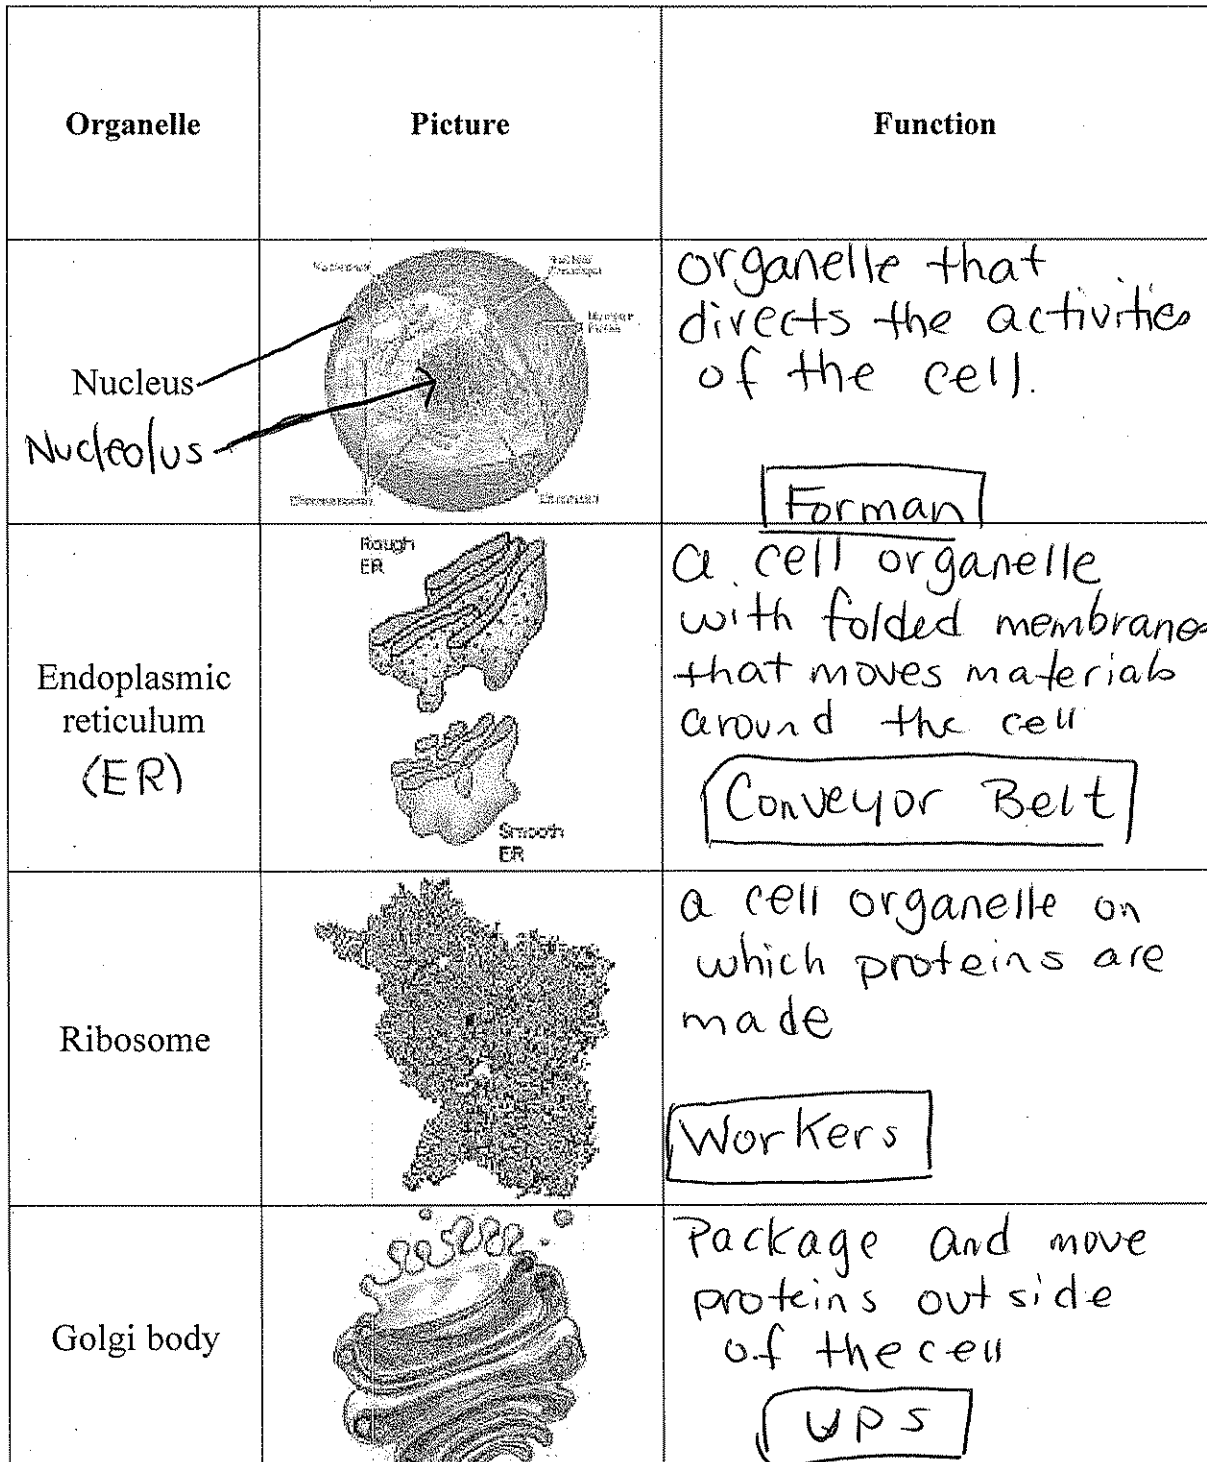 Organelle
Picture
Function
Nucleus
Nucleolus
organelle that
directs the activities
of the cell.
Forman
Endoplasmic
reticulum
(ER)
Rough
ER
Smooth
ER
a cell organelle
with folded membranes
that moves materials
around the cell
Conveyor Belt
Ribosome
a cell organelle on
which proteins are
made
Workers
Golgi body
Package and move
proteins outside
of the cell
UPS